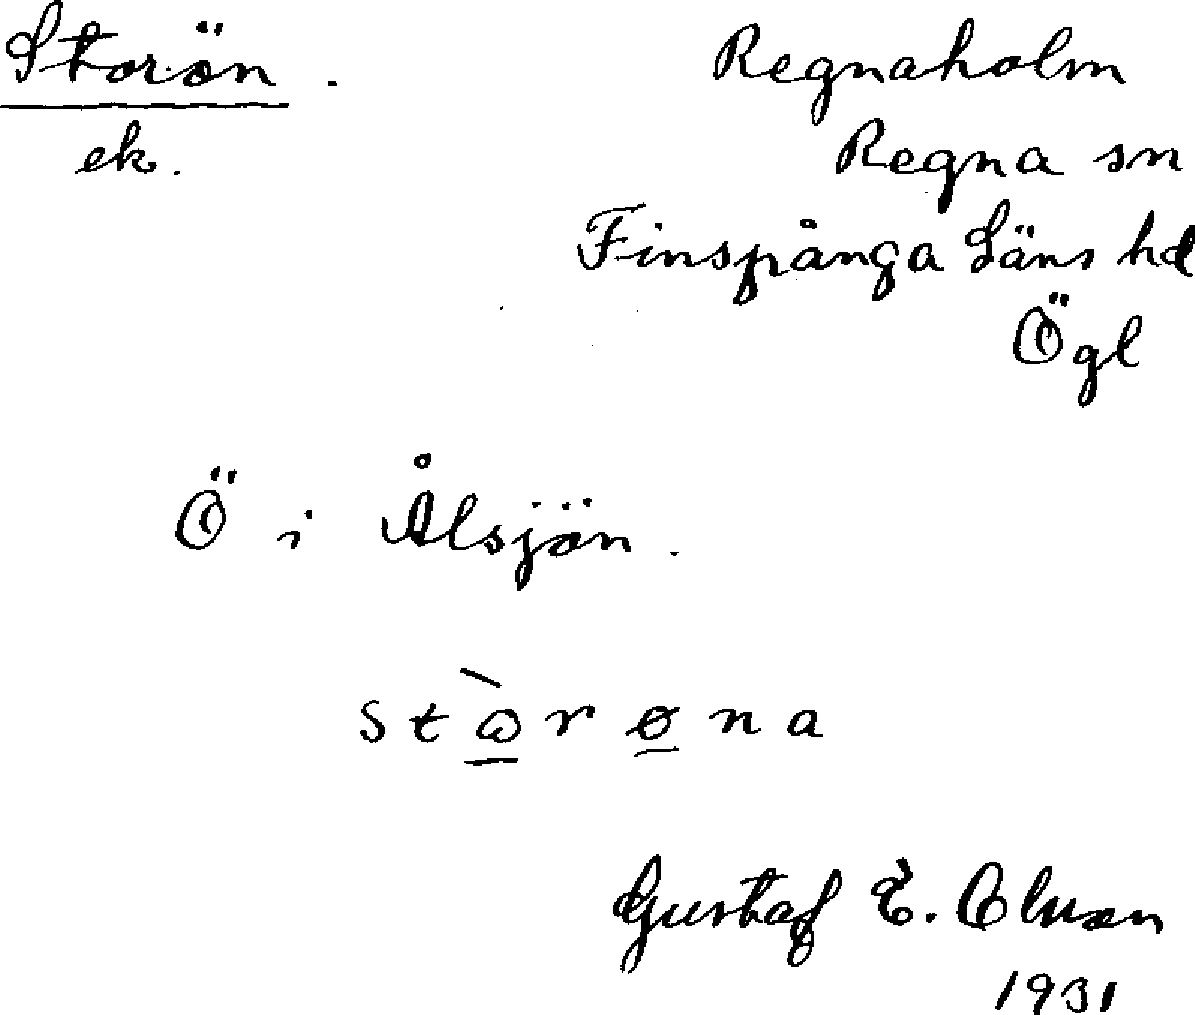 Storön.
ek.
Regnaholm
Regna sn
Finspånga Läns hd
Ögl
Ö i Ålsjön.
stὼ̲rø̲na
Gustaf E. Olsson
1931